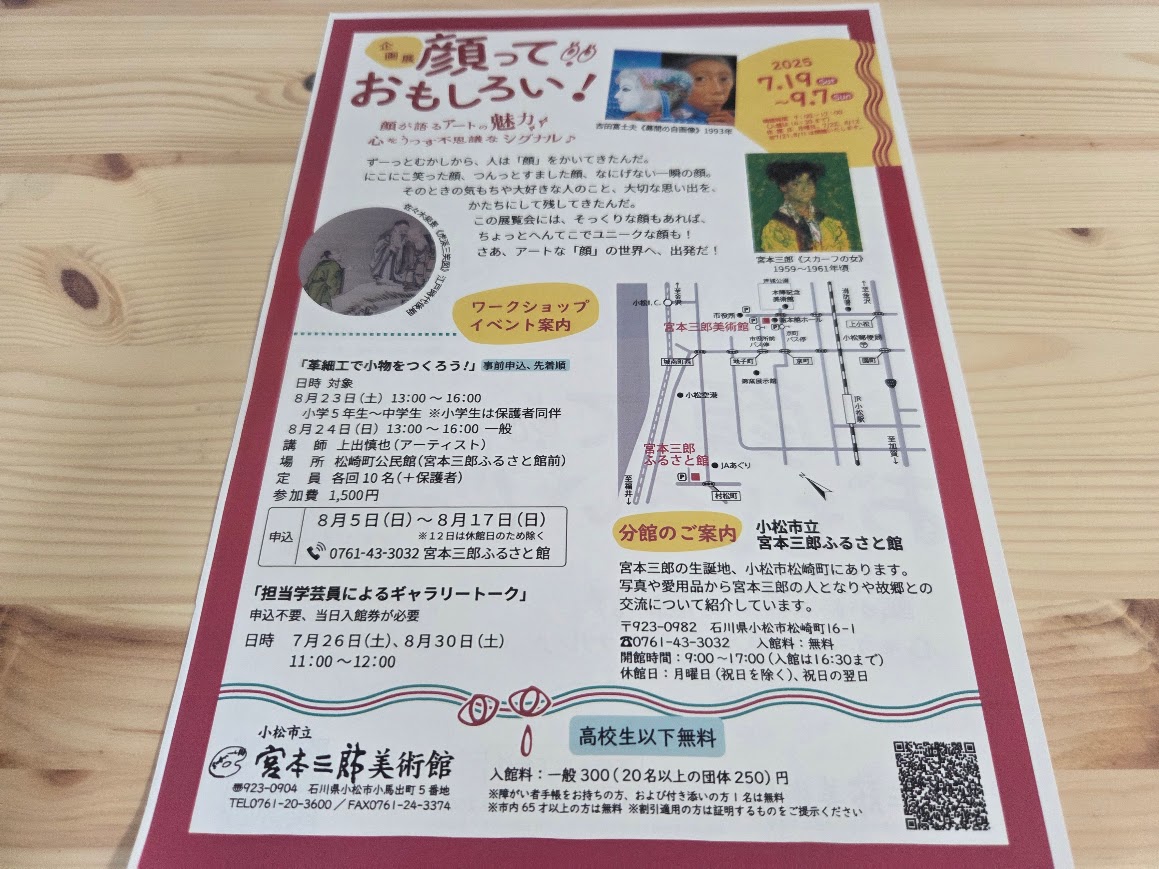 企画展
顔って
おもしろい!
顔が語るアートの魅力
心をうつす不思議なシグナル♪
ずーっとむかしから、人は「顔」をかいてきたんだ。
にこにこ笑った顔、つんっとすました顔、なにげない一瞬の顔。
そのときの気もちや大好きな人のこと、大切な思い出を、
かたちにして残してきたんだ。
この展覧会には、そっくりな顔もあれば、
ちょっとへんてこでユニークな顔も!
さあ、アートな「顔」の世界へ、出発だ!
吉田冨士夫《幕間の自画像》1993年
2025
7.19 Sat
~9.7 Sun
宮本三郎《スカーフの女》
1959～1961年頃
ワークショップ
イベント案内
「革細工で小物をつくろう!」 事前申込、先着順
日時 対象
8月23日(土) 13:00～16:00
小学5年生～中学生 ※小学生は保護者同伴
8月24日(日) 13:00～16:00 一般
講 師 上出慎也(アーティスト)
場 所 松崎町公民館(宮本三郎ふるさと館前)
定 員 各回10名(+保護者)
参加費 1,500円
申込
8月5日(日)～8月17日(日)
※12日は休館日のため除く
0761-43-3032 宮本三郎ふるさと館
「担当学芸員によるギャラリートーク」
申込不要、当日入館券が必要
日時 7月26日(土)、8月30日(土)
11:00～12:00
小松I.C.
至金沢
芦城公園
本陣記念
美術館
市役所
宮本三郎美術館
消防署
至金沢
上小松
市役所前
バス停
京町
バス停
小松郵便局
城南町西
寺町
園町
小松空港
JR小松駅
宮本三郎
ふるさと館
JAあぐり
至福井
村松町
至加賀
N
分館のご案内
小松市立
宮本三郎ふるさと館
宮本三郎の生誕地、小松市松崎町にあります。
写真や愛用品から宮本三郎の人となりや故郷との
交流について紹介しています。
〒923-0982 石川県小松市松崎町16-1
☎0761-43-3032 入館料:無料
開館時間:9:00～17:00(入館は16:30まで)
休館日:月曜日(祝日を除く)、祝日の翌日
小松市立
宮本三郎美術館
〒923-0904 石川県小松市小馬出町5番地
TEL0761-20-3600/FAX0761-24-3374
高校生以下無料
入館料:一般300(20名以上の団体250)円
※障がい者手帳をお持ちの方、および付き添いの方1名は無料
※市内65才以上の方は無料 ※割引適用の方は証明するものをご提示ください